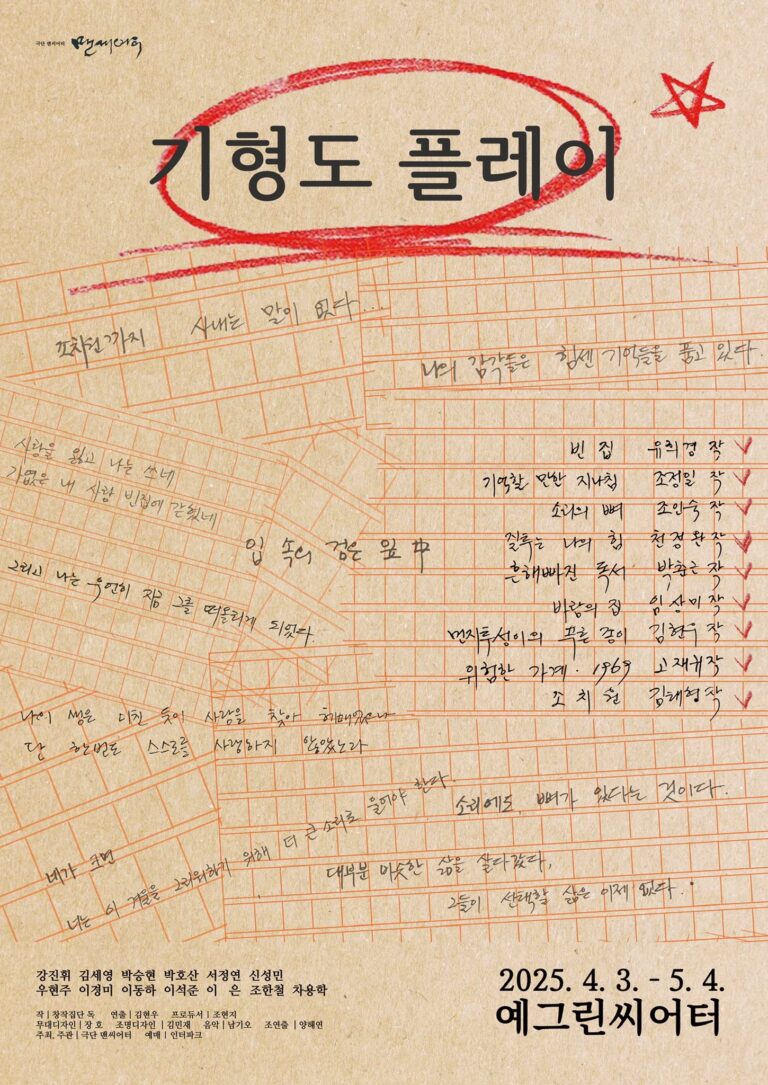 극단 맨씨어터 맨씨어터
기형도 플레이
조치원까지 사내는 말이 없다...
나의 감각들은 힘센 기억들을 품고 있다.
사랑을 잃고 나는 쓰네
가엾은 내 사랑 빈집에 갇혔네
입 속의 검은 잎 中
그리고 나는 우연히 지금 그를 떠올리게 되었다.
빈 집 유희경 작
기억할 만한 지나침 조정일 작
소리의 뼈 조인숙 작
질투는 나의 힘 천정완 작
흔해빠진 독서 박춘근 작
바람의 집 임상미 작
먼지투성이의 푸른 종이 김현우 작
위험한 가계·1969 고재귀 작
조 치 원 김태형 작
나의 생은 미친 듯이 사랑을 찾아 헤매었으나
단 한번도 스스로를 사랑하지 않았노라
네가 크면
너는 이 겨울을 그리워하기 위해 더 큰 소리로 울어야 한다.
소리에도 뼈가 있다는 것이다.
대부분 비슷한 삶을 살다갔다,
그들이 선택할 삶은 이제 없다.
강진휘 김세영 박승현 박호산 서정연 신성민
우현주 이경미 이동하 이석준 이 은 조한철 차용학
작 | 창작집단 독 연출 | 김현우 프로듀서 | 조현지
무대디자인 | 장 호 조명디자인 | 김민재 음악 | 남기오 조연출 | 양해연
주최, 주관 | 극단 맨씨어터 예매 | 인터파크
2025. 4. 3. - 5. 4.
예그린씨어터